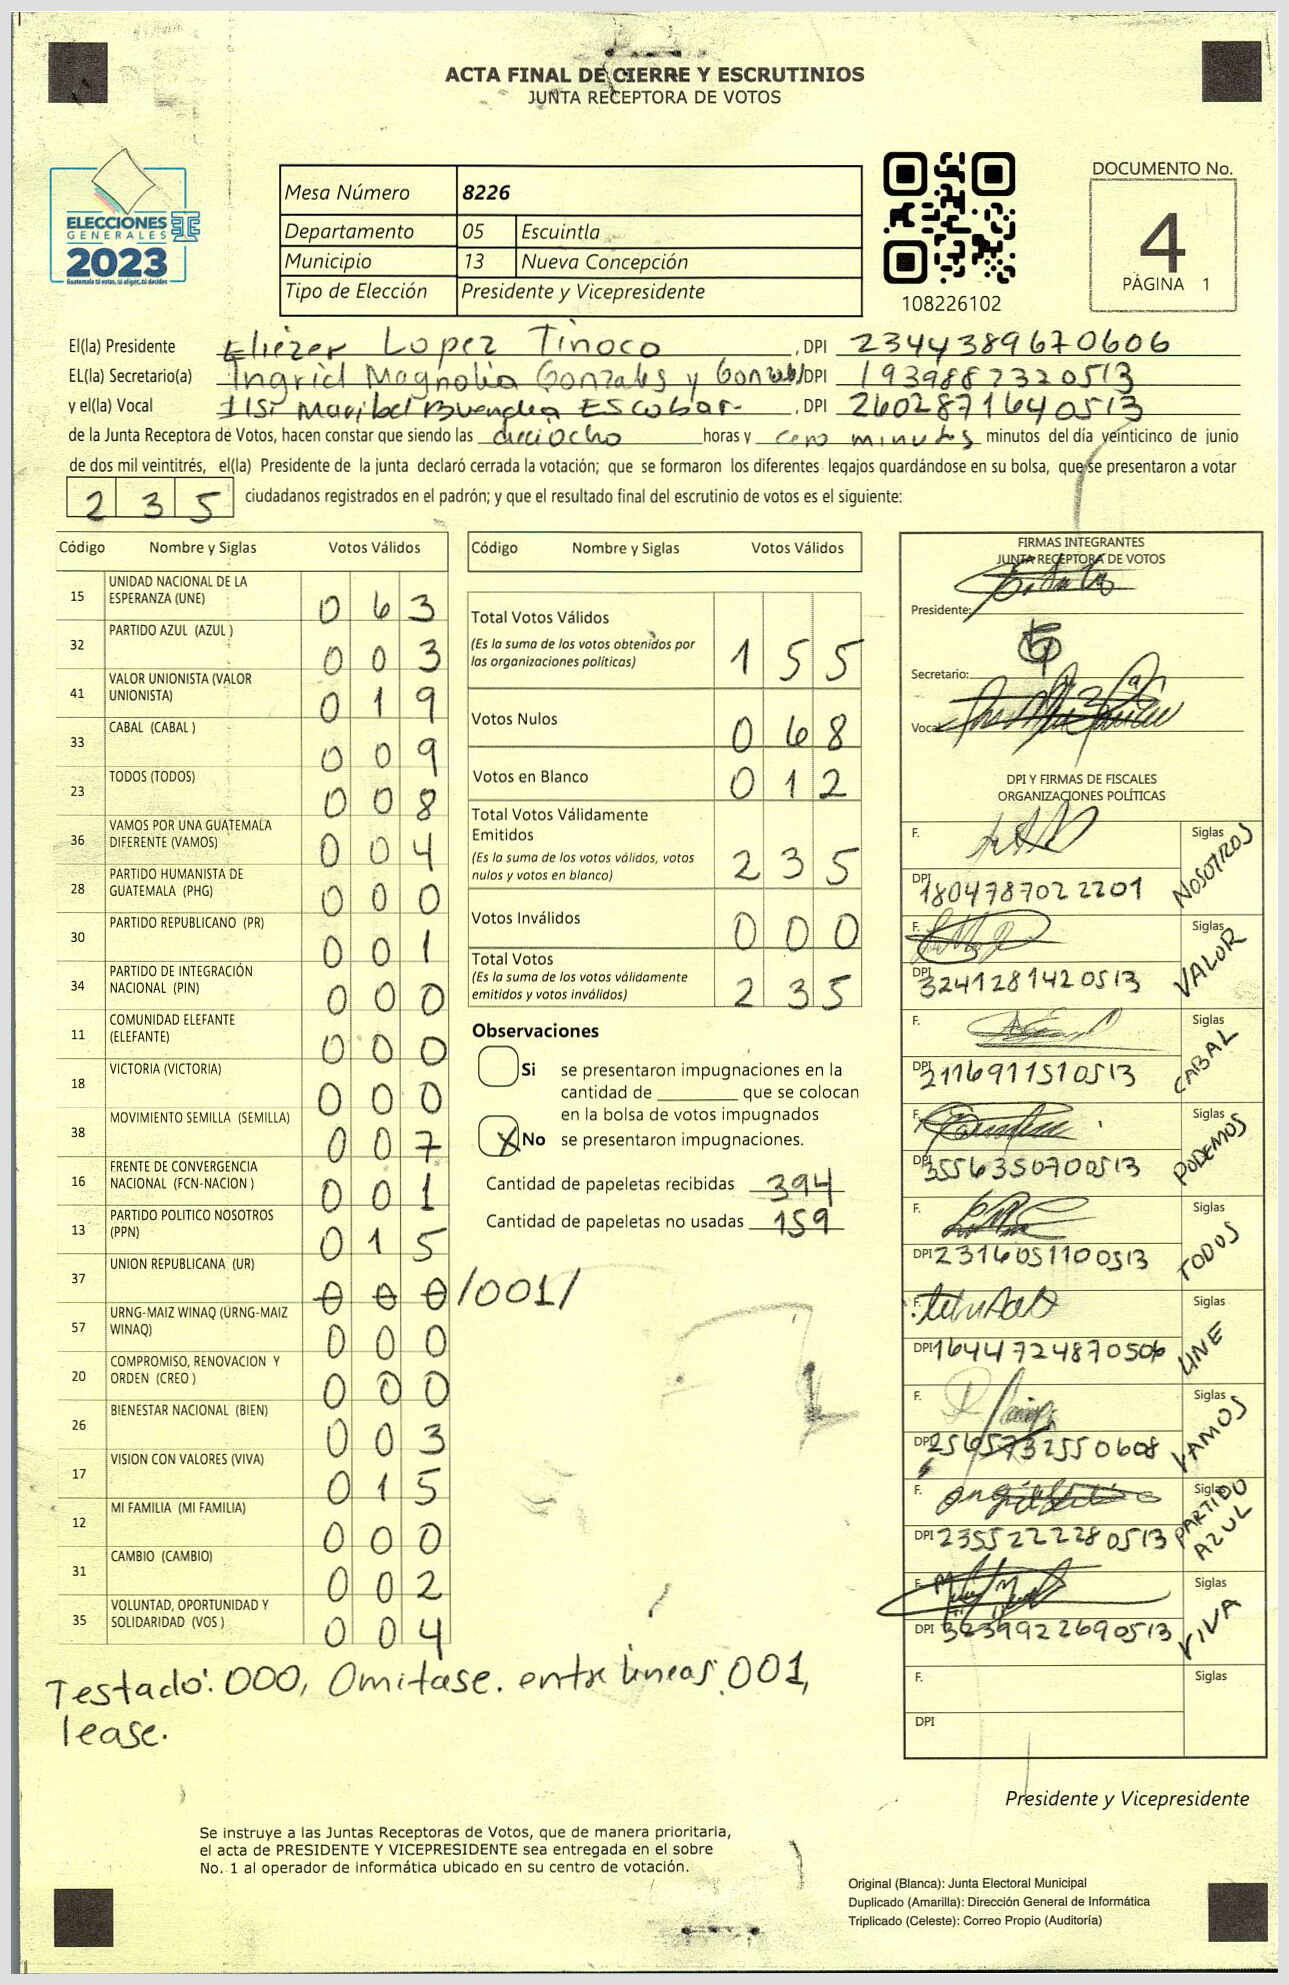 ACTA FINAL DE CIERRE Y ESCRUTINIOS
JUNTA RECEPTORA DE VOTOS
ELECCIONES
GENERALES
2023
Guatemala tú votas, tú eliges, tú decides
Mesa Número 8226
Departamento 05 Escuintla
Municipio 13 Nueva Concepción
Tipo de Elección Presidente y Vicepresidente
108226102
DOCUMENTO No.
4
PÁGINA 1
El(la) Presidente Eliézer Lopez Tinoco , DPI 2344389670606
EL(la) Secretario(a) Ingrid Magnolia Gonzales y Gonzales DPI 1939887320513
y el(la) Vocal Ilsi Maribel Buendia Escobar , DPI 2602871640513
de la Junta Receptora de Votos, hacen constar que siendo las dieciocho horas y cero minutos minutos del día veinticinco de junio
de dos mil veintitrés, el(la) Presidente de la junta declaró cerrada la votación; que se formaron los diferentes legajos guardándose en su bolsa, que se presentaron a votar
235 ciudadanos registrados en el padrón; y que el resultado final del escrutinio de votos es el siguiente:
Código Nombre y Siglas Votos Válidos
15 UNIDAD NACIONAL DE LA ESPERANZA (UNE) 063
32 PARTIDO AZUL (AZUL ) 003
41 VALOR UNIONISTA (VALOR UNIONISTA) 019
33 CABAL (CABAL ) 009
23 TODOS (TODOS) 008
36 VAMOS POR UNA GUATEMALA DIFERENTE (VAMOS) 004
28 PARTIDO HUMANISTA DE GUATEMALA (PHG) 000
30 PARTIDO REPUBLICANO (PR) 001
34 PARTIDO DE INTEGRACIÓN NACIONAL (PIN) 000
11 COMUNIDAD ELEFANTE (ELEFANTE) 000
18 VICTORIA (VICTORIA) 000
38 MOVIMIENTO SEMILLA (SEMILLA) 007
16 FRENTE DE CONVERGENCIA NACIONAL (FCN-NACION ) 001
13 PARTIDO POLITICO NOSOTROS (PPN) 015
37 UNION REPUBLICANA (UR) 000 /001/
57 URNG-MAIZ WINAQ (URNG-MAIZ WINAQ) 000
20 COMPROMISO, RENOVACION Y ORDEN (CREO ) 000
26 BIENESTAR NACIONAL (BIEN) 003
17 VISION CON VALORES (VIVA) 015
12 MI FAMILIA (MI FAMILIA) 000
31 CAMBIO (CAMBIO) 002
35 VOLUNTAD, OPORTUNIDAD Y SOLIDARIDAD (VOS ) 004
Código Nombre y Siglas Votos Válidos
Total Votos Válidos 155
(Es la suma de los votos obtenidos por
las organizaciones políticas)
Votos Nulos 068
Votos en Blanco 012
Total Votos Válidamente
Emitidos 235
(Es la suma de los votos válidos, votos
nulos y votos en blanco)
Votos Inválidos 000
Total Votos 235
(Es la suma de los votos válidamente
emitidos y votos inválidos)
Observaciones
Si se presentaron impugnaciones en la
cantidad de ________ que se colocan
en la bolsa de votos impugnados
X No se presentaron impugnaciones.
Cantidad de papeletas recibidas 394
Cantidad de papeletas no usadas 159
FIRMAS INTEGRANTES
JUNTA RECEPTORA DE VOTOS
Presidente:
Secretario:
Vocal
DPI Y FIRMAS DE FISCALES
ORGANIZACIONES POLÍTICAS
F. Siglas NOSOTROS
DPI 1804787022201
F. Siglas VALOR
DPI 3241281420513
F. Siglas CABAL
DPI 2116911510513
F. Siglas PODEMOS
DPI 3556350700513
F. Siglas TODOS
DPI 2316051100513
F. Siglas UNE
DPI 1644724870506
F. Siglas VAMOS
DPI 2565732550608
F. Siglas PARTIDO AZUL
DPI 2355222280513
F. Siglas VIVA
DPI 3239922690513
F. Siglas
DPI
Testado: 000, Omitase. entre lineas: 001,
lease.
Presidente y Vicepresidente
Se instruye a las Juntas Receptoras de Votos, que de manera prioritaria,
el acta de PRESIDENTE Y VICEPRESIDENTE sea entregada en el sobre
No. 1 al operador de informática ubicado en su centro de votación.
Original (Blanca): Junta Electoral Municipal
Duplicado (Amarilla): Dirección General de Informática
Triplicado (Celeste): Correo Propio (Auditoría)